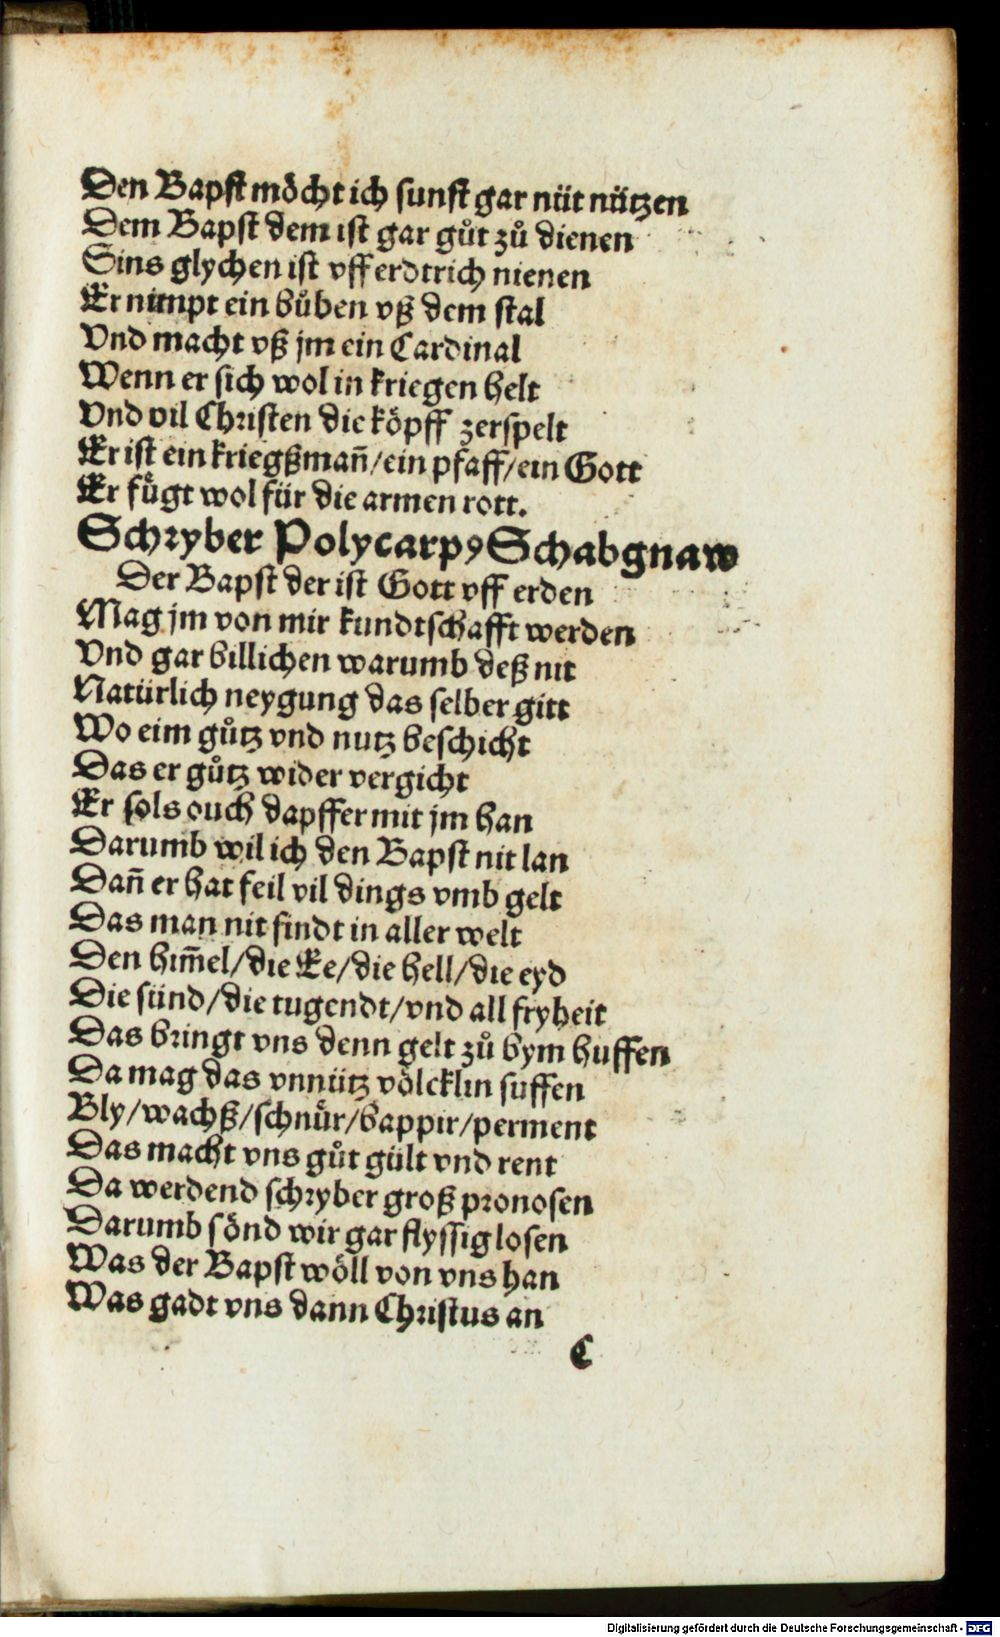 Den Bapſt möcht ich ſunſt gar nüt nützen
Dem Bapſt dem iſt gar gůt zů dienen
Sins glychen iſt vff erdtrich nienen
Er nimpt ein bůben vß dem ſtal
Vnd macht vß jm ein Cardinal
Wenn er ſich wol in kriegen helt
Vnd vil Chriſten die köpff zerſpelt
Er iſt ein kriegßmañ/ein pfaff/ein Gott
Er fůgt wol für die armen rott.
Schꝛyber Polycarpꝯ Schabgnaw
Der Bapſt der iſt Gott vff erden
Mag jm von mir kundtſchafft werden
Vnd gar billichen warumb deß nit
Natürlich neygung das ſelber gitt
Wo eim gůtz vnd nutz beſchicht
Das er gůtz wider vergicht
Er ſols ouch dapffer mit jm han
Darumb wil ich den Bapſt nit lan
Dañ er hat feil vil dings vmb gelt
Das man nit findt in aller welt
Den him̃el/die Ee/die hell/die eyd
Die ſünd/die tugendt/vnd all fryheit
Das bꝛingt vns denn gelt zů bym huffen
Da mag das vnnütz völcklin ſuffen
Bly/wachß/ſchnür/bappir/perment
Das macht vns gůt gült vnd rent
Da werdend ſchꝛyber groß pꝛonoſen
Darumb ſönd wir gar flyſſig loſen
Was der Bapſt wöll von vns han
Was gadt vns dann Chꝛiſtus an
C
Digitalisierung gefördert durch die Deutsche Forschungsgemeinschaft - DFG